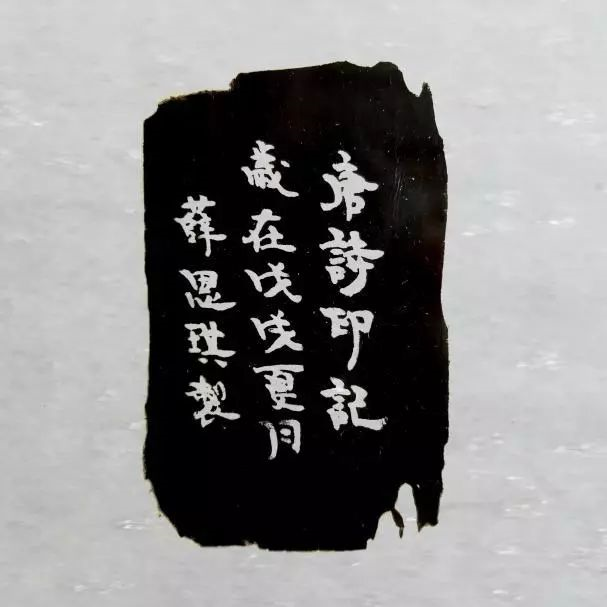 唐詩印記
歲在戊戌夏月
薛思琪製